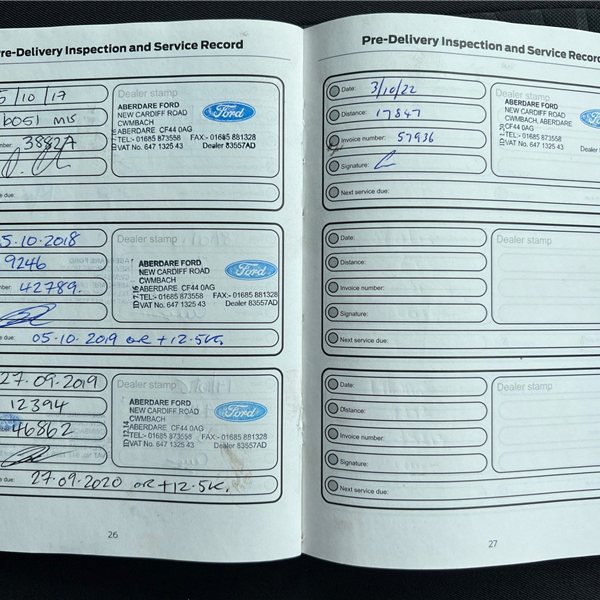 re-Delivery Inspection and Service Record
5/10/17
6051 MLS
mber: 3882A
e due:
Dealer stamp
ABERDARE FORD
NEW CARDIFF ROAD
CWMBACH
ABERDARE CF44 0AG
TEL:- 01685 873558 FAX:- 01685 881328
VAT No. 647 1325 43 Dealer 83557AD
Ford
05.10.2018
9246
mber: 42789.
e due: 05.10.2019 OR +12.5K.
Dealer stamp
ABERDARE FORD
NEW CARDIFF ROAD
CWMBACH
ABERDARE CF44 0AG
TEL:- 01685 873558 FAX:- 01685 881328
VAT No. 647 1325 43 Dealer 83557AD
ID 7.16
Ford
27.09.2019
12394
46862
e due: 27.09.2020 OR +12.5K.
Dealer stamp
ABERDARE FORD
NEW CARDIFF ROAD
CWMBACH
ABERDARE CF44 0AG
TEL:- 01685 873558 FAX:- 01685 881328
VAT No. 647 1325 43 Dealer 83557AD
ID 12.14
Ford
26
Pre-Delivery Inspection and Service Record
Date: 3/10/22
Distance: 17847
Invoice number: 57936
Signature:
Next service due:
Dealer stamp
ABERDARE FORD
NEW CARDIFF ROAD
CWMBACH, ABERDARE
CF44 0AG
TEL:- 01685 873558
VAT No. 647 1325 43
Dealer
Ford
Date:
Distance:
Invoice number:
Signature:
Next service due:
Dealer stamp
Date:
Distance:
Invoice number:
Signature:
Next service due:
Dealer stamp
27